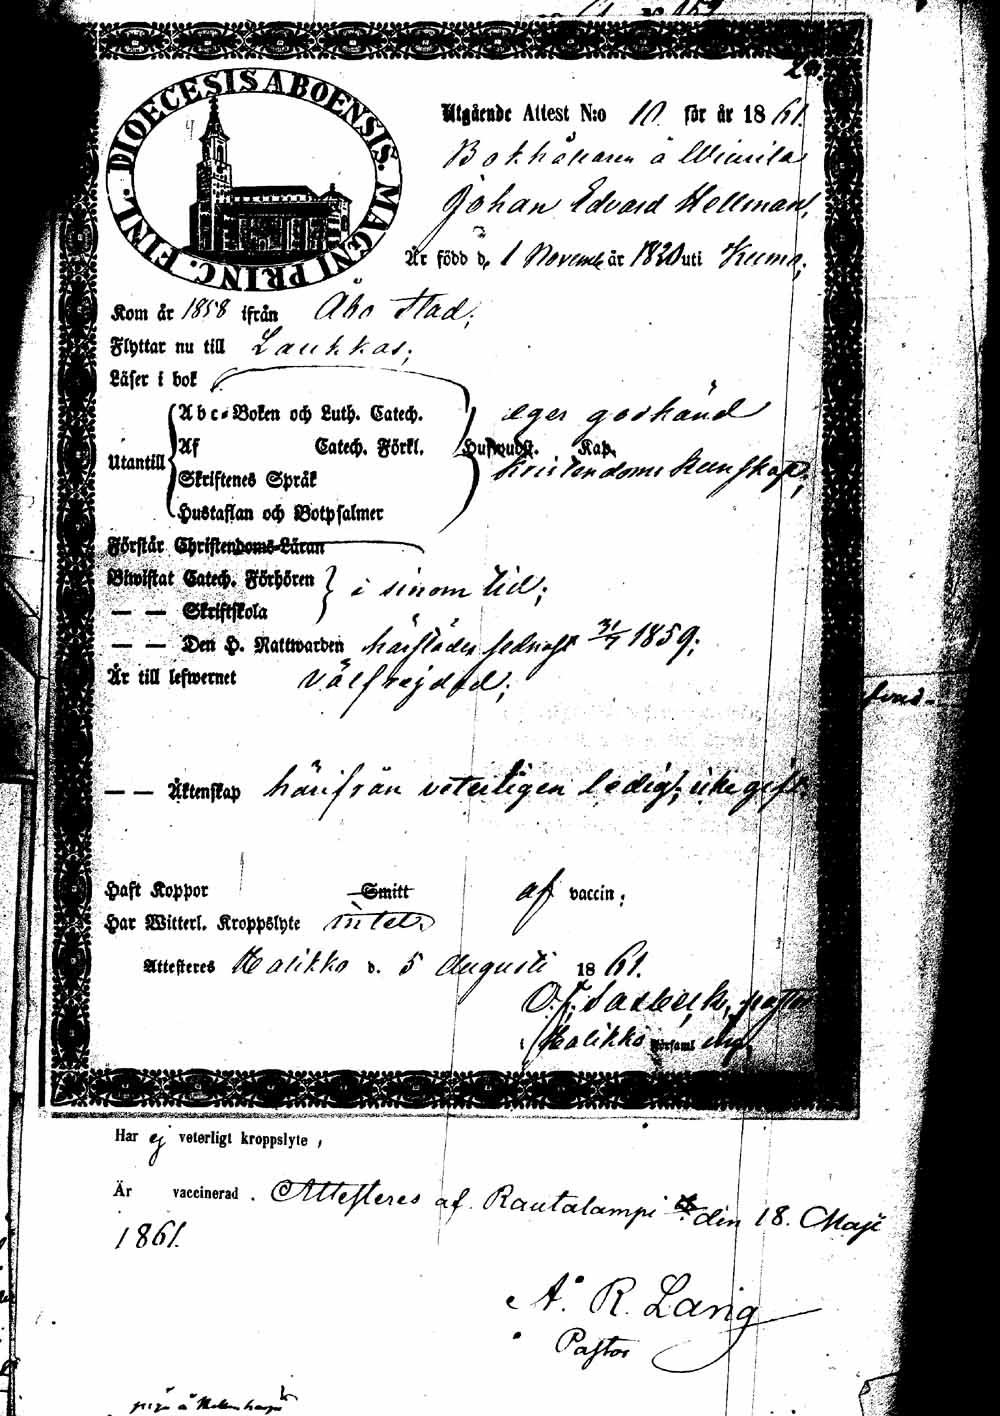 DIOECESIS ABOENSIS. MAGNI PRINC. FINL.
Utgående Attest N:o 10. för år 1861.
Bokhållaren å Wiurila
Johan Edvard Hellman,
Är född d. 1 November år 1820 uti Kumo;
Kom år 1858 ifrån Åbo stad;
Flyttar nu till Laukkas;
Läser i bok
Abc-Boken och Luth. Catech. eger godkänd
Utantill Af Catech. Förkl. Hufwudst. Kap.
kristendoms kunskap;
Skriftenes Språk
Hustaflan och Botpsalmer
Förstår Christendoms-Läran
Biwistat Catech. Förhören i sinom tid;
— — Skriftskola
— — Den H. Nattwarden härstädes sednast 31/7 1859;
Är till lefwernet välfrejdad;
— — Äktenskap härifrån veterligen ledig, icke gift.
Haft Koppor Smitt af vaccin;
Har Witterl. Kroppslyte intet.
Attesteres Halikko d. 5 Augusti 1861.
Halikko Församl
Har ej veterligt kroppslyte,
Är vaccinerad. Attesteres af. Rautalampi den 18. Maji
1861.
A. R. Lang
Pastor